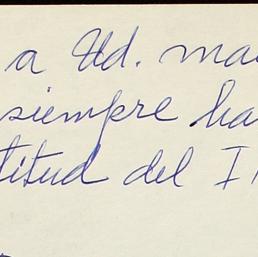 a Ud. ma
siempre ha
titud del I